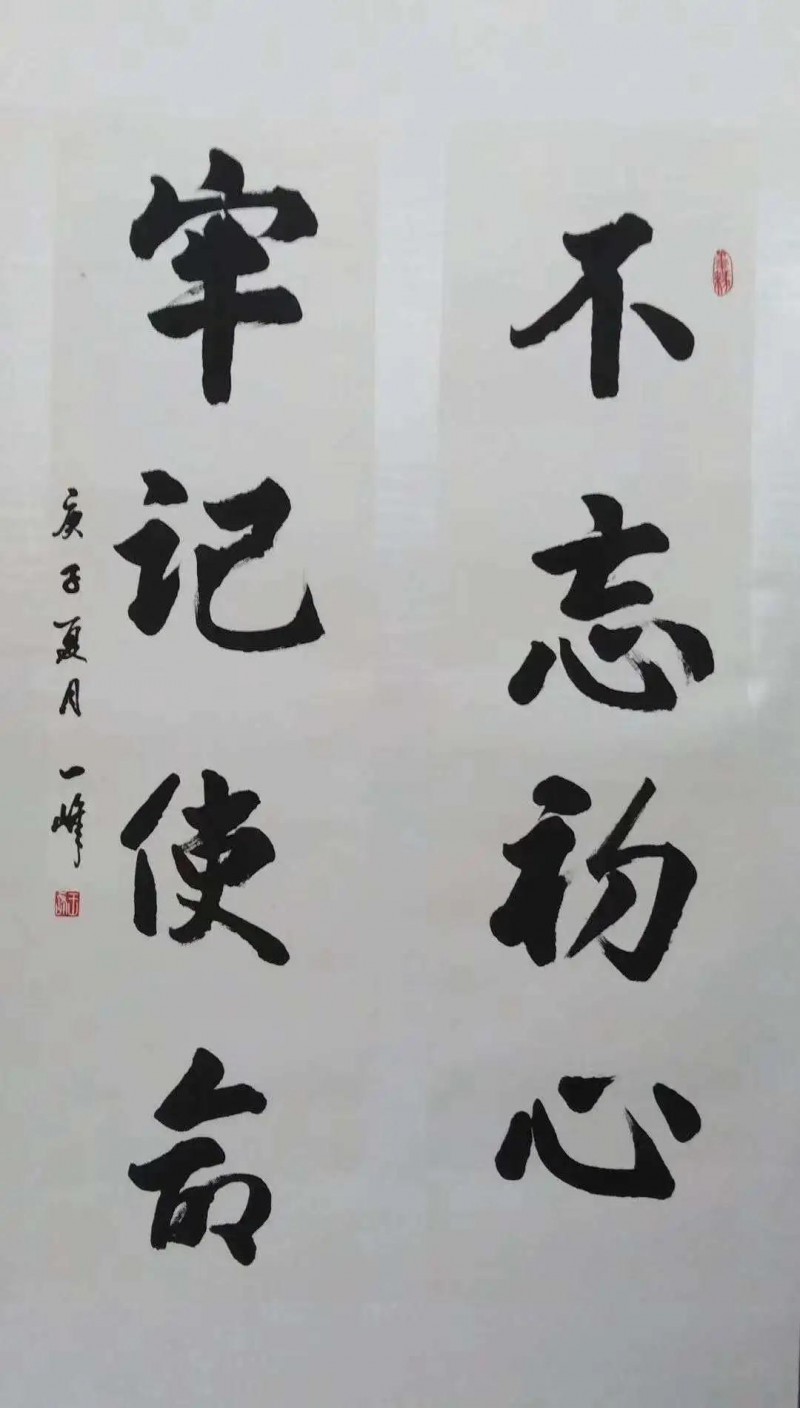 不忘初心
牢记使命
庚子夏月 一峰